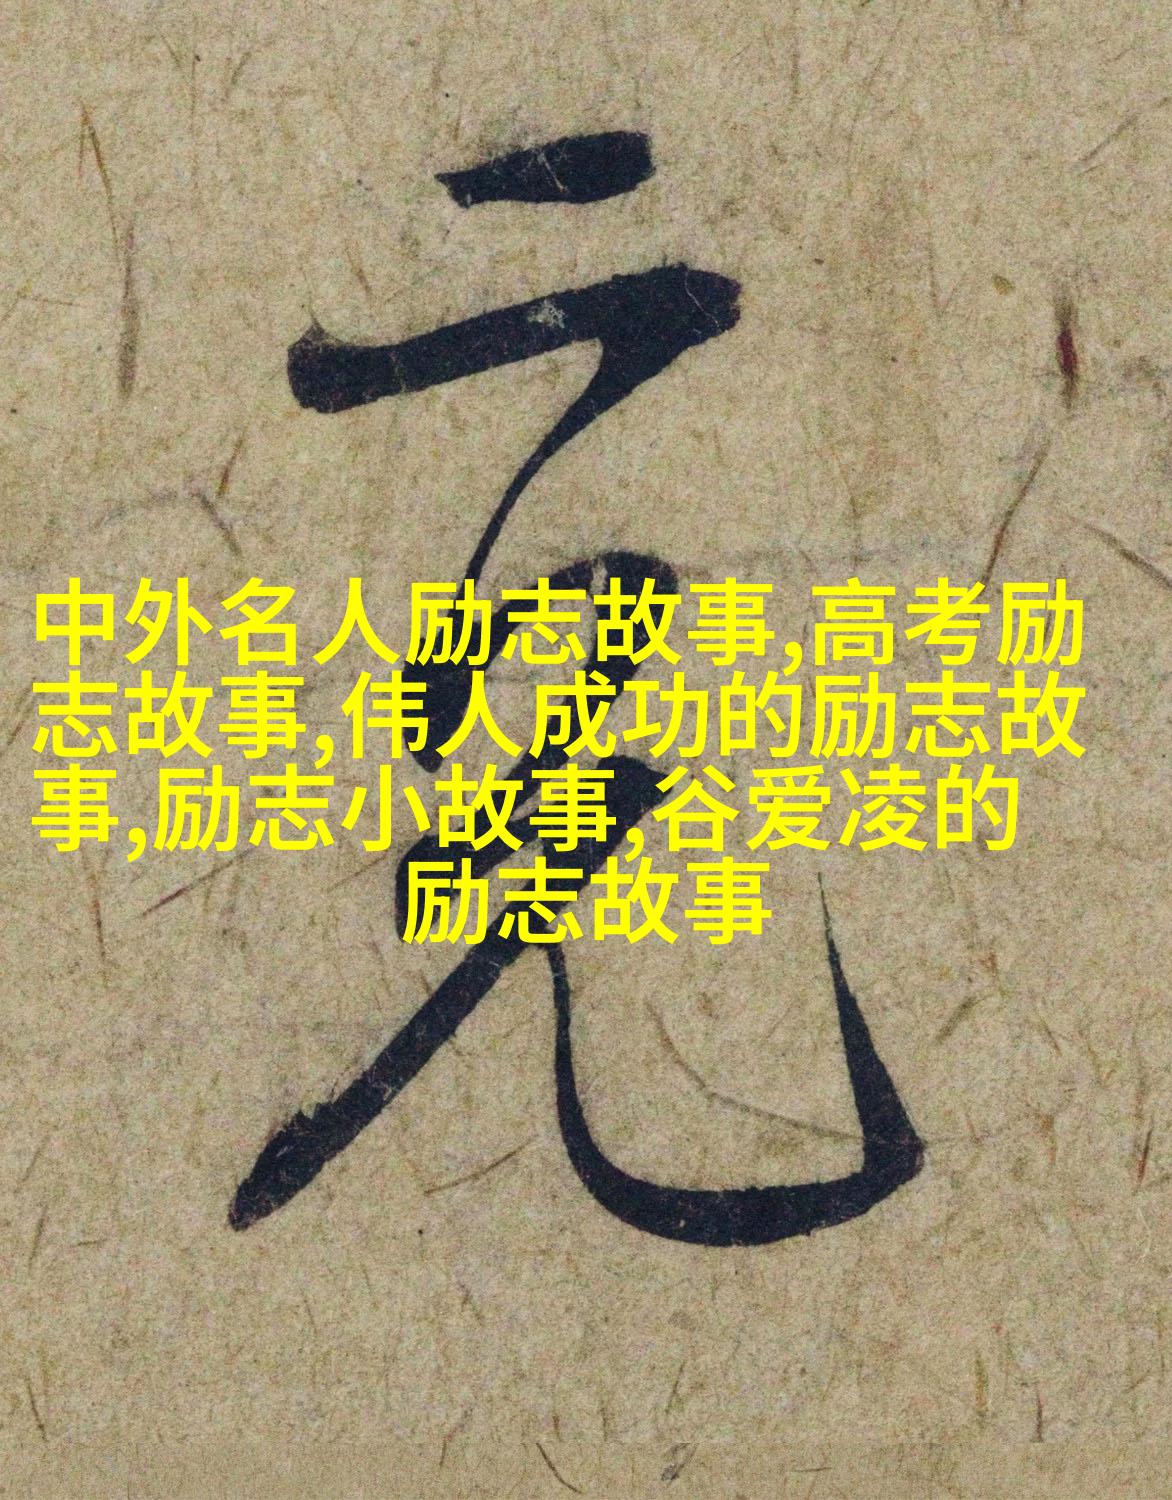 中外名人励志故事,高考励
志故事,伟人成功的励志故
事,励志小故事,谷爱凌的
励志故事